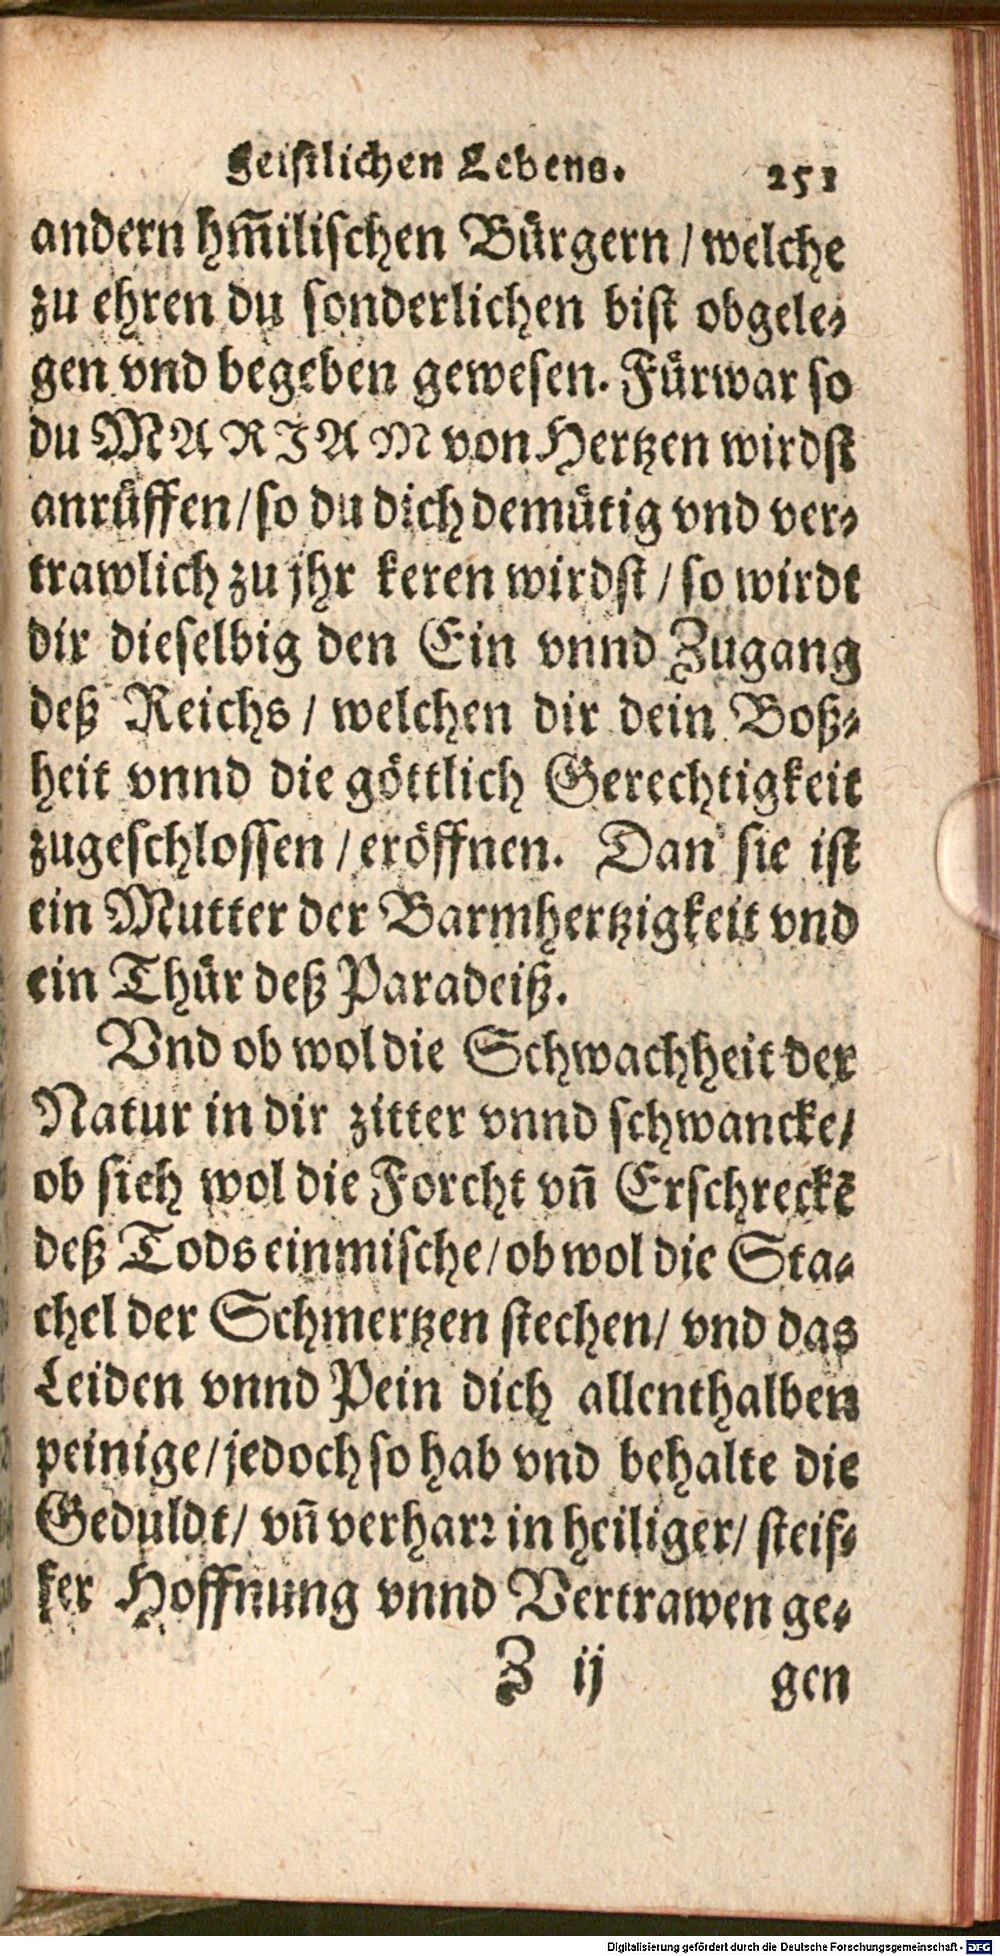 geistlichen Lebens. 251
andern hm̃ilischen Bürgern / welche
zu ehren du sonderlichen bist obgele⸗
gen vnd begeben gewesen. Fürwar so
du MARIAM von Hertzen wirdst
anrüffen / so du dich demütig vnd ver⸗
trawlich zu jhr keren wirdst / so wirdt
dir dieselbig den Ein vnnd Zugang
deß Reichs / welchen dir dein Boß⸗
heit vnnd die göttlich Gerechtigkeit
zugeschlossen / eröffnen. Dan sie ist
ein Mutter der Barmhertzigkeit vnd
ein Thür deß Paradeiß.
Vnd ob wol die Schwachheit der
Natur in dir zitter vnnd schwancke /
ob sich wol die Forcht vñ Erschreckẽ
deß Tods einmische / ob wol die Sta⸗
chel der Schmertzen stechen / vnd das
Leiden vnnd Pein dich allenthalben
peinige / jedoch so hab vnd behalte die
Geduldt / vñ verharr in heiliger / steif⸗
fer Hoffnung vnnd Vertrawen ge⸗
Z ij gen
Digitalisierung gefördert durch die Deutsche Forschungsgemeinschaft - DFG